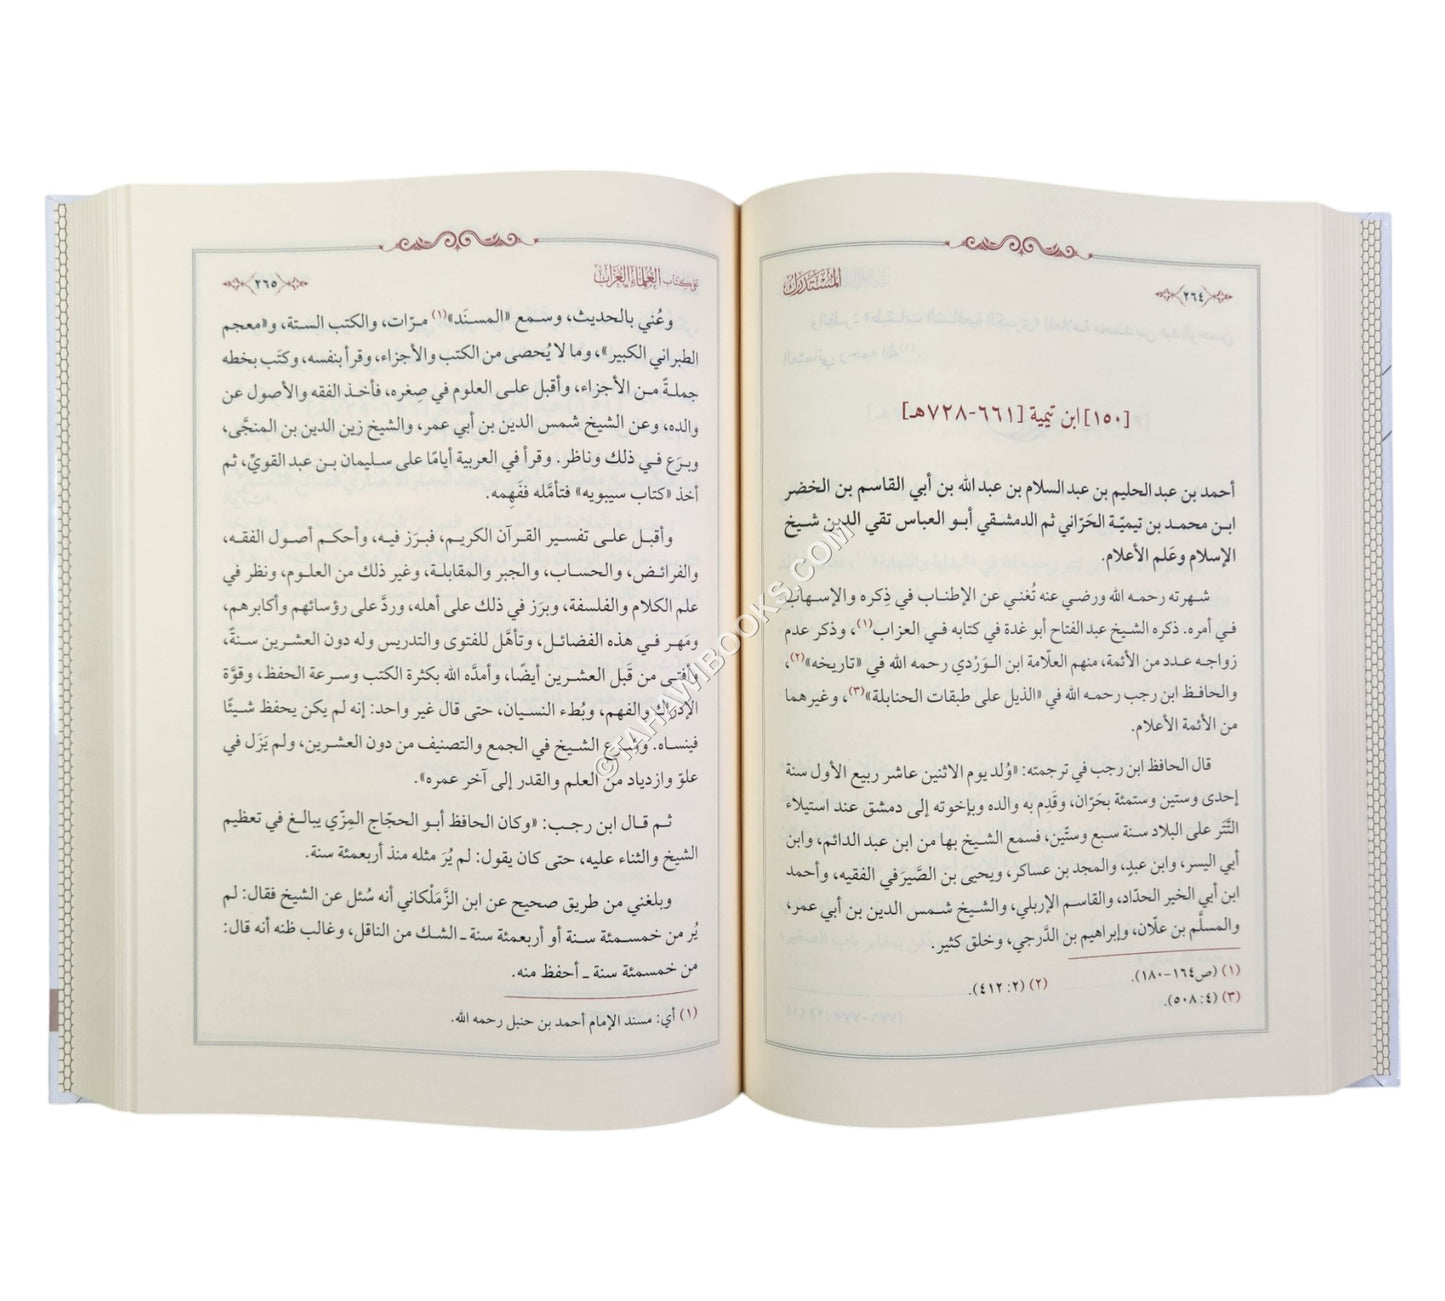 المستدرك
٢٦٤
[١٥٠] ابن تيمية [٦٦١-٧٢٨هـ]
أحمد بن عبد الحليم بن عبد السلام بن عبد الله بن أبي القاسم بن الخضر
ابن محمد بن تيميّة الحَرّاني ثم الدمشقي أبو العباس تقي الدين شيخ
الإسلام وعَلم الأعلام.
شهرته رحمه الله ورضي عنه تُغني عن الإطناب في ذِكره والإسهاب
في أمره. ذكره الشيخ عبد الفتاح أبو غدة في كتابه في العزاب(١)، وذكر عدم
زواجه عدد من الأئمة، منهم العلّامة ابن الوَرْدي رحمه الله في «تاريخه»(٢)،
والحافظ ابن رجب رحمه الله في «الذيل على طبقات الحنابلة»(٣)، وغيرهما
من الأئمة الأعلام.
قال الحافظ ابن رجب في ترجمته: «وُلد يوم الاثنين عاشر ربيع الأول سنة
إحدى وستين وستمئة بحَرّان، وقَدِم به والده وبإخوته إلى دمشق عند استيلاء
التَّتَر على البلاد سنة سبع وستّين، فسمع الشيخ بها من ابن عبد الدائم، وابن
أبي اليسر، وابن عبدٍ، والمجد بن عساكر، ويحيى بن الصَّيرَفي الفقيه، وأحمد
ابن أبي الخير الحدّاد، والقاسم الإربلي، والشيخ شمس الدين بن أبي عمر،
والمسلَّم بن علّان، وإبراهيم بن الدَّرجي، وخلق كثير.
(١) (ص١٦٤-١٨٠).
(٢) (٢: ٤١٢).
(٣) (٤: ٥٠٨).
على كتاب العلماء العزاب
٢٦٥
وعُني بالحديث، وسمع «المسنَد»(١) مرّات، والكتب الستة، و«معجم
الطبراني الكبير»، وما لا يُحصى من الكتب والأجزاء، وقرأ بنفسه، وكتَب بخطه
جملةً من الأجزاء، وأقبل على العلوم في صِغره، فأخذ الفقه والأصول عن
والده، وعن الشيخ شمس الدين بن أبي عمر، والشيخ زين الدين بن المنجَّى،
وبرَع في ذلك وناظر. وقرأ في العربية أيامًا على سليمان بن عبد القويّ، ثم
أخذ «كتاب سيبويه» فتأمَّله ففَهِمه.
وأقبل على تفسير القرآن الكريم، فبرَز فيه، وأحكم أصول الفقه،
والفرائض، والحساب، والجبر والمقابلة، وغير ذلك من العلوم، ونظر في
علم الكلام والفلسفة، وبرَز في ذلك على أهله، وردَّ على رؤسائهم وأكابرهم،
ومَهر في هذه الفضائل، وتأهَّل للفتوى والتدريس وله دون العشرين سنةً،
وأفتى من قَبل العشرين أيضًا، وأمدَّه الله بكثرة الكتب وسرعة الحفظ، وقوَّة
الإدراك والفهم، وبُطء النسيان، حتى قال غير واحد: إنه لم يكن يحفظ شيئًا
فينساه. وشرع الشيخ في الجمع والتصنيف من دون العشرين، ولم يَزَل في
علوّ وازدياد من العلم والقدر إلى آخر عمره».
ثم قال ابن رجب: «وكان الحافظ أبو الحجّاج المِزّي يبالغ في تعظيم
الشيخ والثناء عليه، حتى كان يقول: لم يُرَ مثله منذ أربعمئة سنة.
وبلغني من طريق صحيح عن ابن الزَّمَلْكاني أنه سُئل عن الشيخ فقال: لم
يُر من خمسمئة سنة أو أربعمئة سنة ـ الشك من الناقل، وغالب ظنه أنه قال:
من خمسمئة سنة ـ أحفظ منه.
(١) أي: مسند الإمام أحمد بن حنبل رحمه الله.
©TAHAWIBOOKS.COM